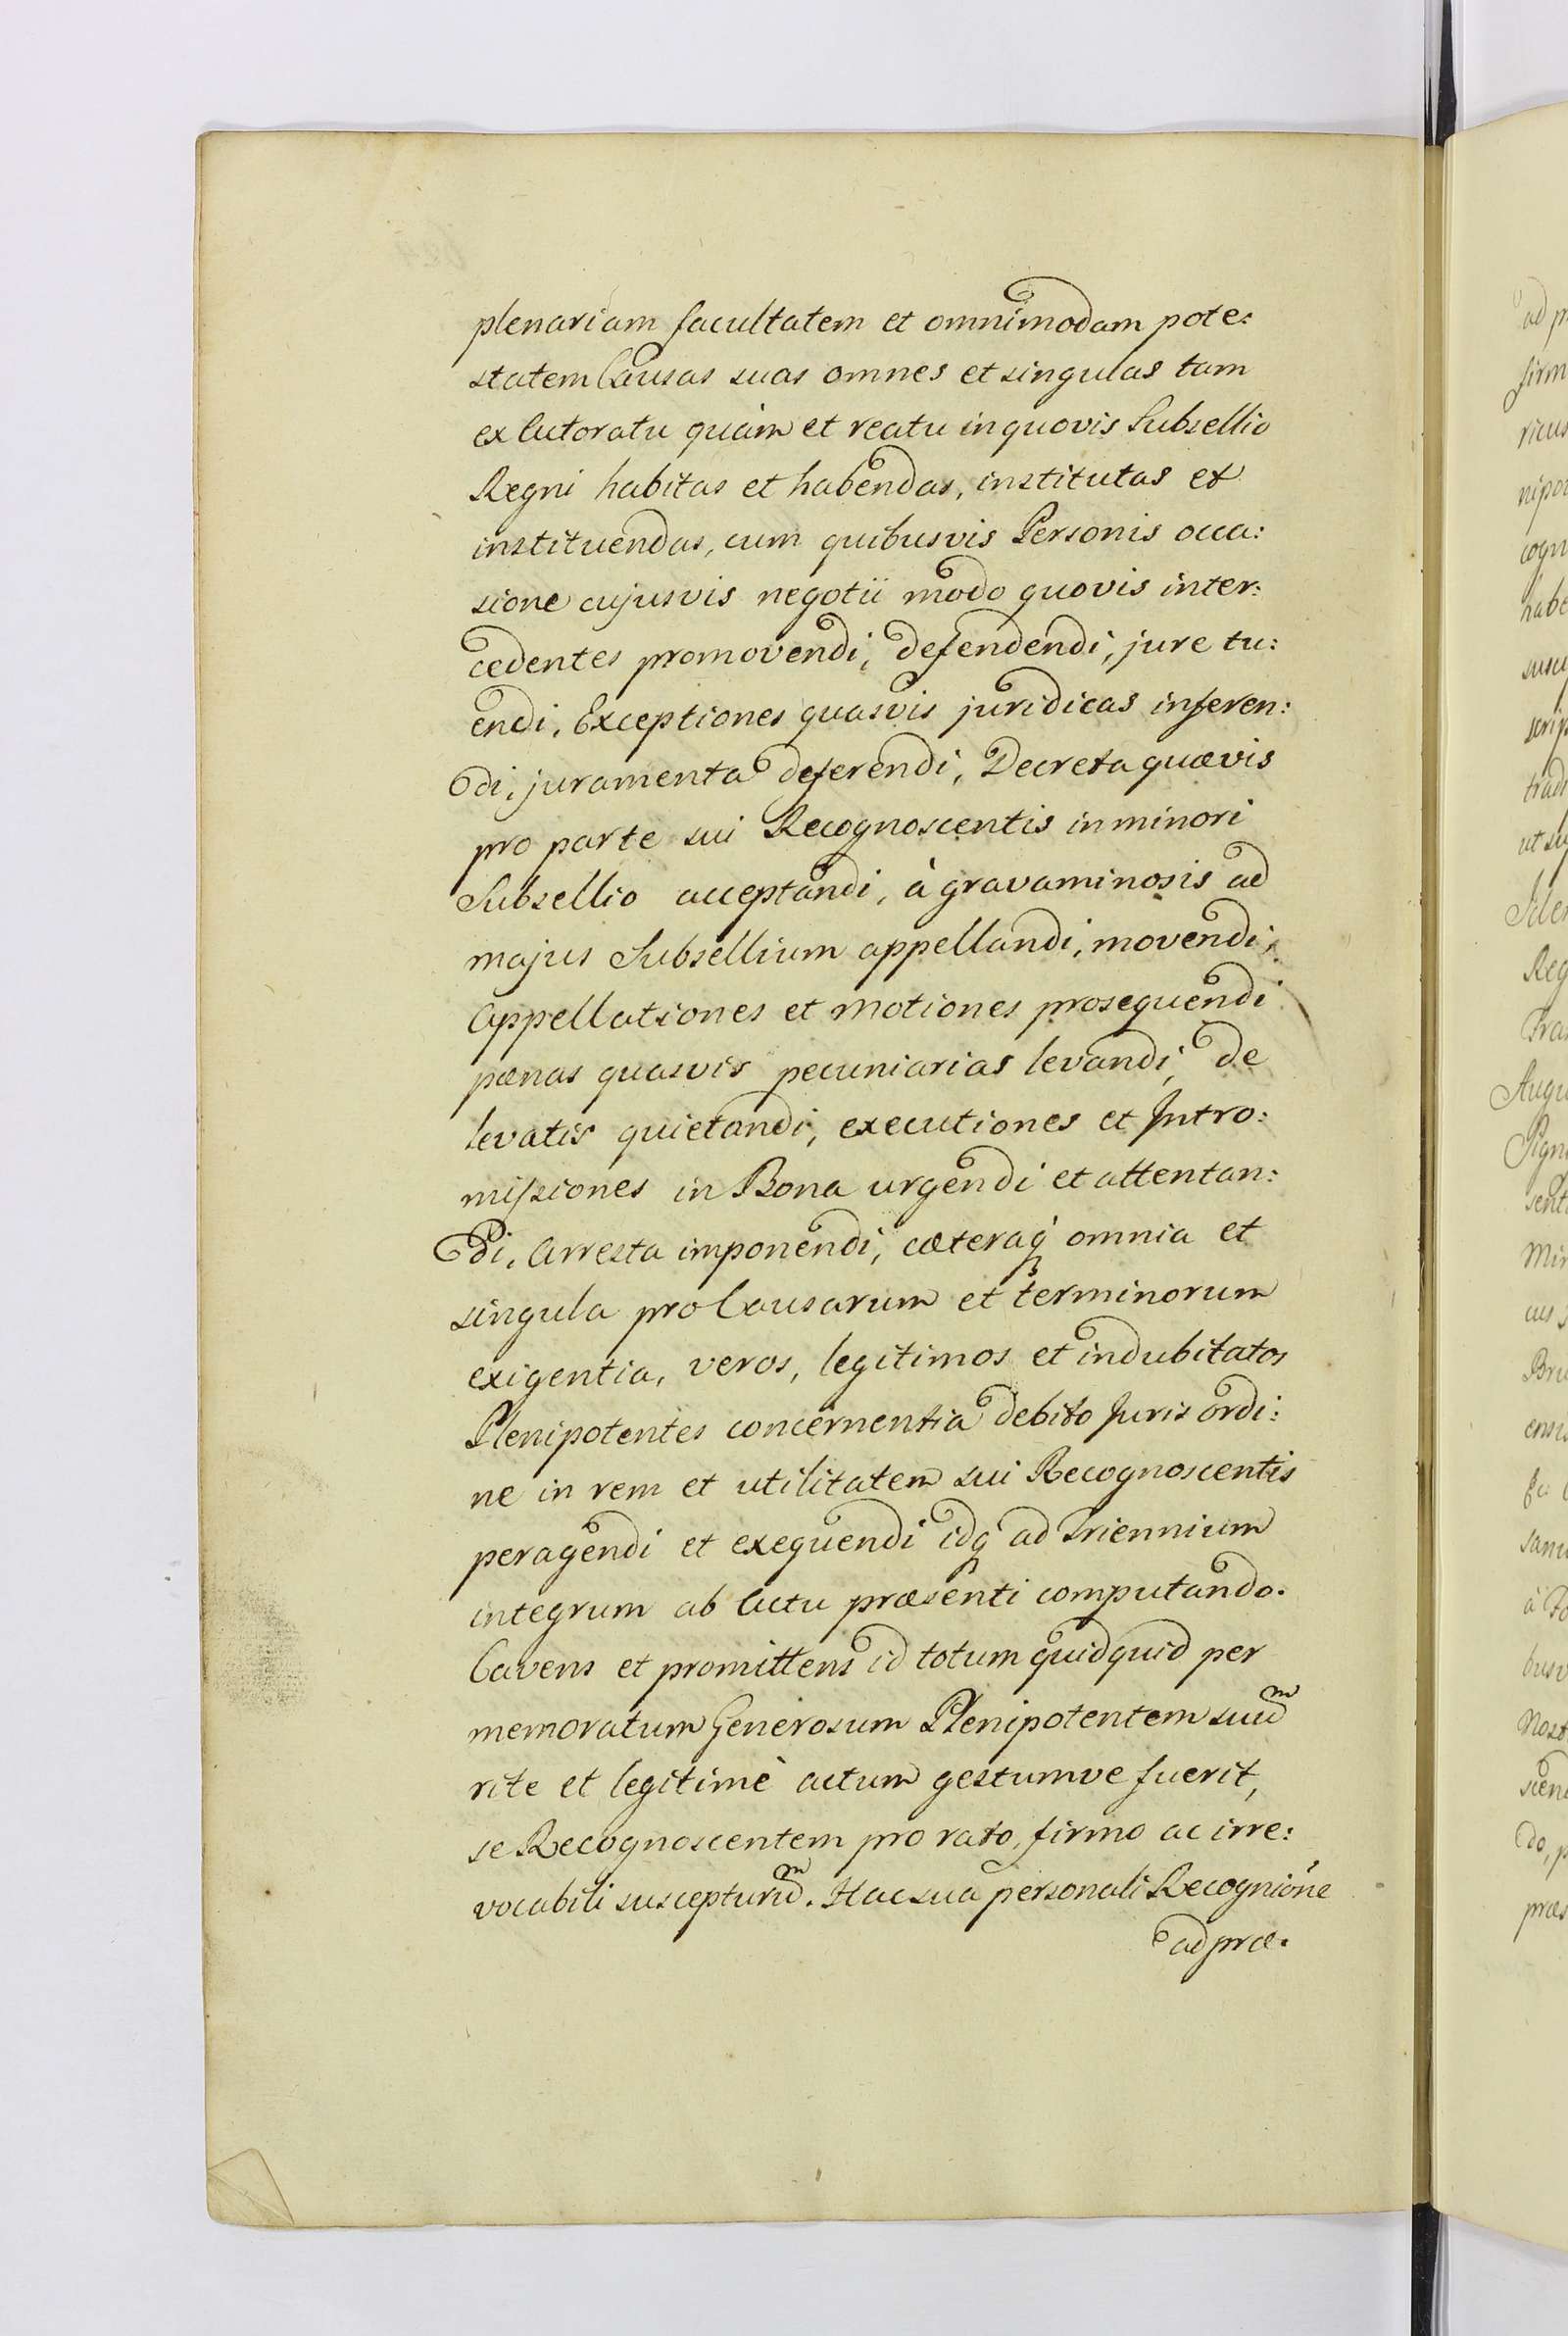 plenariam facultatem et omnimodam pote:
statem Causas suas omnes et singulas tam
ex Actoratu quàm et reatu in quovis Subsellio
Regni habitas et habendas, institutas et
instituendas, cum quibusvis Personis occa:
sione cujusvis negotii modo quovis inter:
cedentes promovendi, defendendi, jure tu:
endi, Exceptiones quasvis juridicas inferen:
di, juramenta deferendi, Decreta quævis
pro parte sui Recognoscentis in minori
Subsellio acceptandi, à gravaminosis ad
majus Subsellium appellandi, movendi,
Appellationes et motiones prosequendi
pænas quasvis pecuniarias levandi, de
levatis quietandi, executiones et Intro:
missiones in Bona urgendi et attentan:
di, Arresta imponendi, cæteraq omnia et
singula pro Causarum et terminorum
exigentia, veros, legitimos et indubitatos
Plenipotentes concernentia debito Juris ordi:
ne in rem et utilitatem sui Recognoscentis
peragendi et exequendi idq ad Triennium
integrum ab Actu præsenti computando.
Cavens et promittens id totum quidquid per
memoratum Generosum Plenipotentem suum
rite et legitimè actum gestumve fuerit,
se Recognoscentem pro rato, firmo ac irre:
vocabili suscepturum. Hac sua personali Recognióne
ad præ.
ad
firm
ricus
nipo
cogn
habe
susc
scrip
trad
ut su
Reg
Tra
Augu
Sign
sent
Mir
cus
Bru
ensis
sam
à
busv
Nost
scen
do,
præs